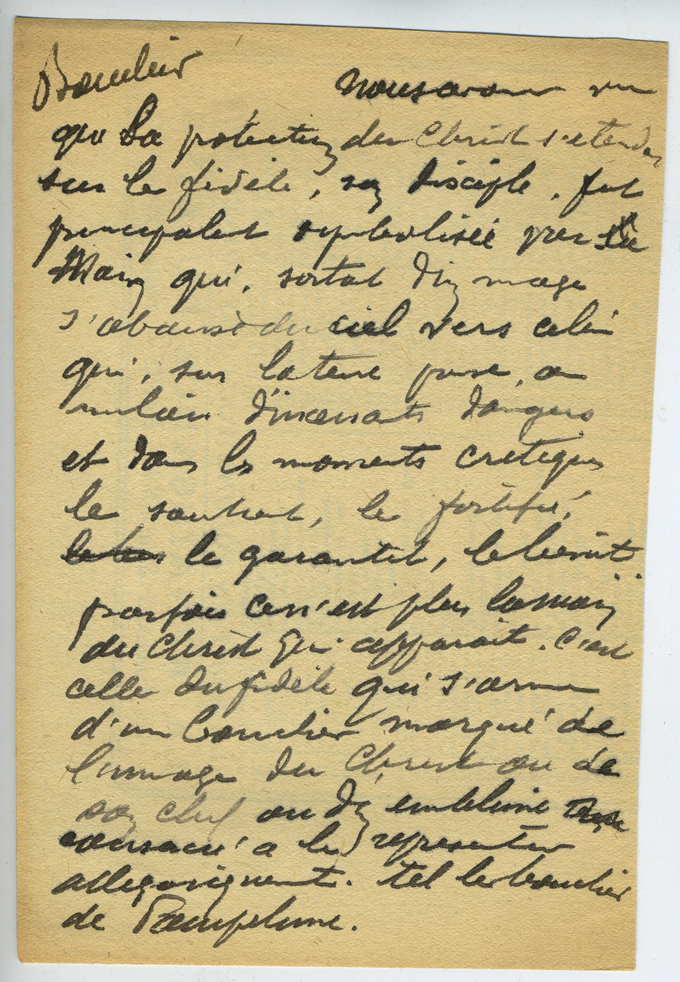 Bouclier
Nous avons vu
que la protection du Christ s'étendant
sur le fidèle, son disciple, fut
principalet symbolisée par la
Main qui, sortat d'un nuage
s'abaisse du ciel vers celui
qui, sur la terre passe, au
milieu d'incessants dangers
et dans les moments critiques
le soutient, le fortifie,
le garantit, le bénit
parfois ce n'est plus la main
du Christ qui apparait. C'est
celle du fidèle qui s'arme
d'un bouclier marqué de
l'image du Christ ou de
son chif ou d'un emblème
consacré a le représenter
allegoriquement. tel le bouclier
de Pampelune.